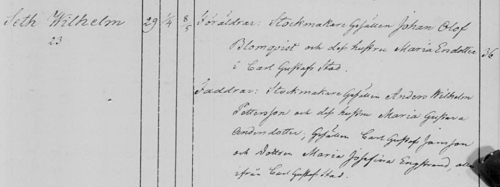 Seth Wilhelm 29 1/4 8/5 Föräldrar: Stockmakare Gesällen Johan Olof
23 Blomqvist och dess hustru Maria Endotter 36
i Carl Gustafs Stad.
Faddrar: Stockmakare Gesällen Anders Wilhelm
Petterson och dess hustru Maria Gustava
Andersdotter, Gesällen Carl Gustaf Jansson
och Dottren Maria Josefina Engstrand, alla
ifrån Carl Gustafs Stad.